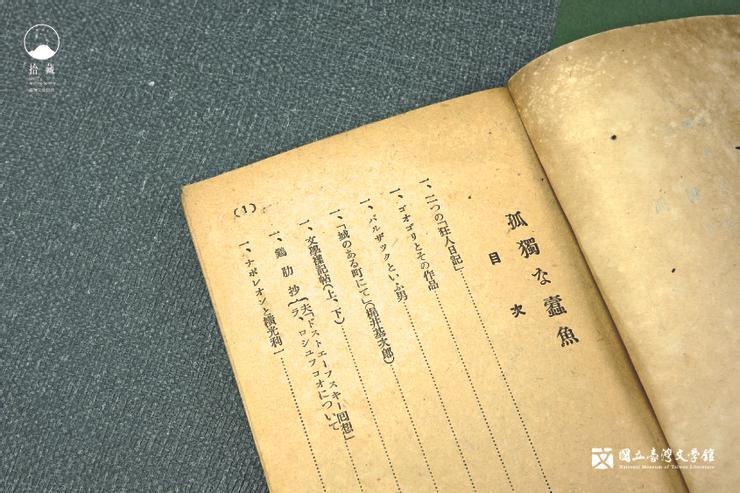 孤獨な蠹魚
目次
一、二つの「狂人日記」
一、ゴオゴリとその作品
一、バルザックといふ男
一、「城のある町にて」(梶井基次郎)
一、文學雜記帖(上、下)
一、鷄肋抄{夫「ドストエーフスキー囘想」
ラ、ロシュフコオについて
一、ナポレオンと橫光利一
(1)
拾藏
國立臺灣文學館
National Museum of Taiwan Literature